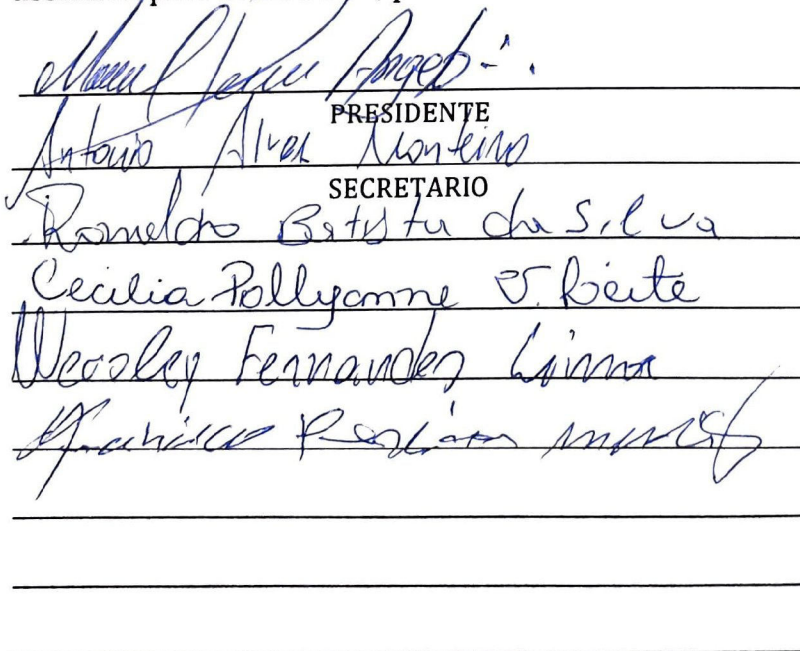 Angelo
PRESIDENTE
Antonio Alves Monteiro
SECRETARIO
Romeldo Batista da Silva
Cecilia Pollyanne V. Leite
Wessley Fernandes Lima
Francisco